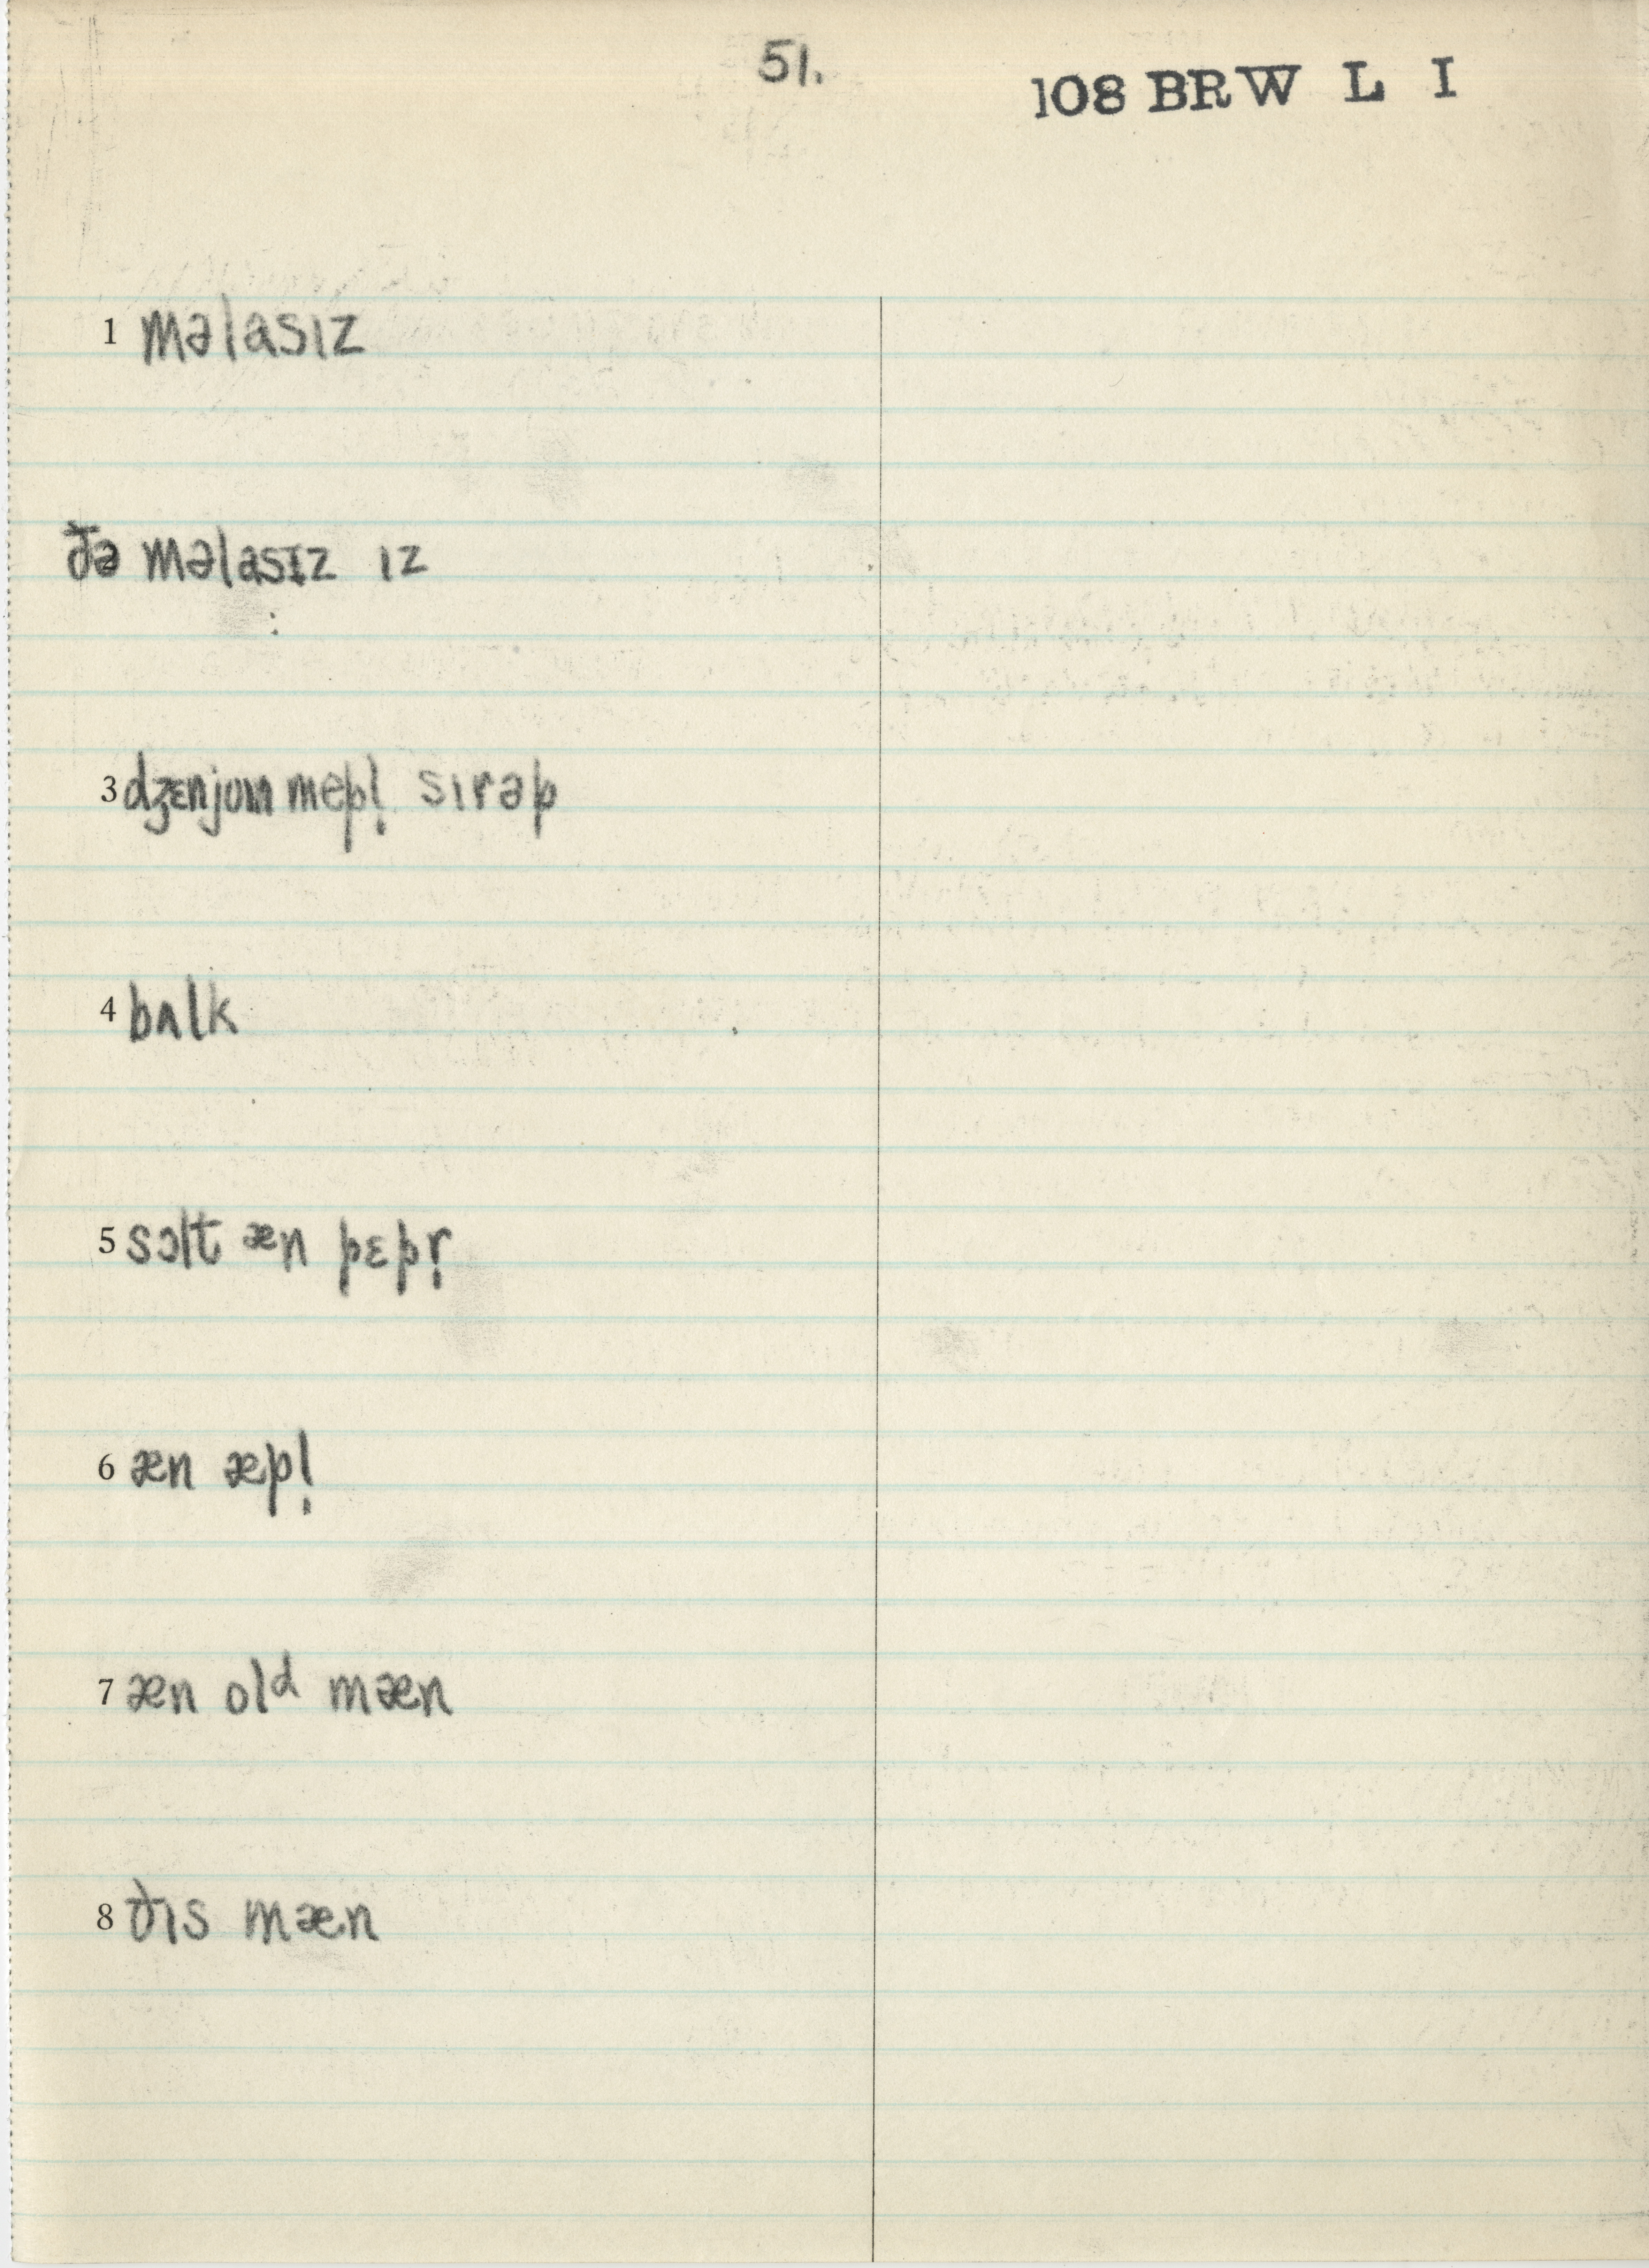 51.
108 BRW L I
1 məlasɪz
ðə məlasɪz ɪz
3 dʒɛnjoɪn mepl̩ sɪrəp
4 bʌlk
5 sɔlt æn pɛpr̩
6 æn æpl̩
7 æn old mæn
8 ðɪs mæn